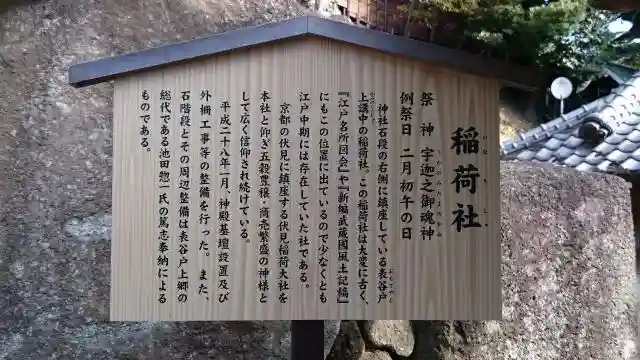 稲荷社
いなりしゃ
祭神 宇迦之御魂神
うかのみたまのかみ
例祭日 二月初午の日
神社石段の右側に鎮座している表谷戸
おもてやと
上講中の稲荷社。この稲荷社は大変に古く、
『江戸名所図会』や『新編武蔵國風土記稿』
にもこの位置に出ているので少なくとも
江戸中期には存在していた社である。
京都の伏見に鎮座する伏見稲荷大社を
本社と仰ぎ五穀豊穣・商売繁盛の神様と
して広く信仰され続けている。
平成二十八年一月、神殿基壇設置及び
外柵工事等の整備を行った。また、
石階段とその周辺整備は表谷戸上郷の
総代である池田惣一氏の篤志奉納による
ものである。